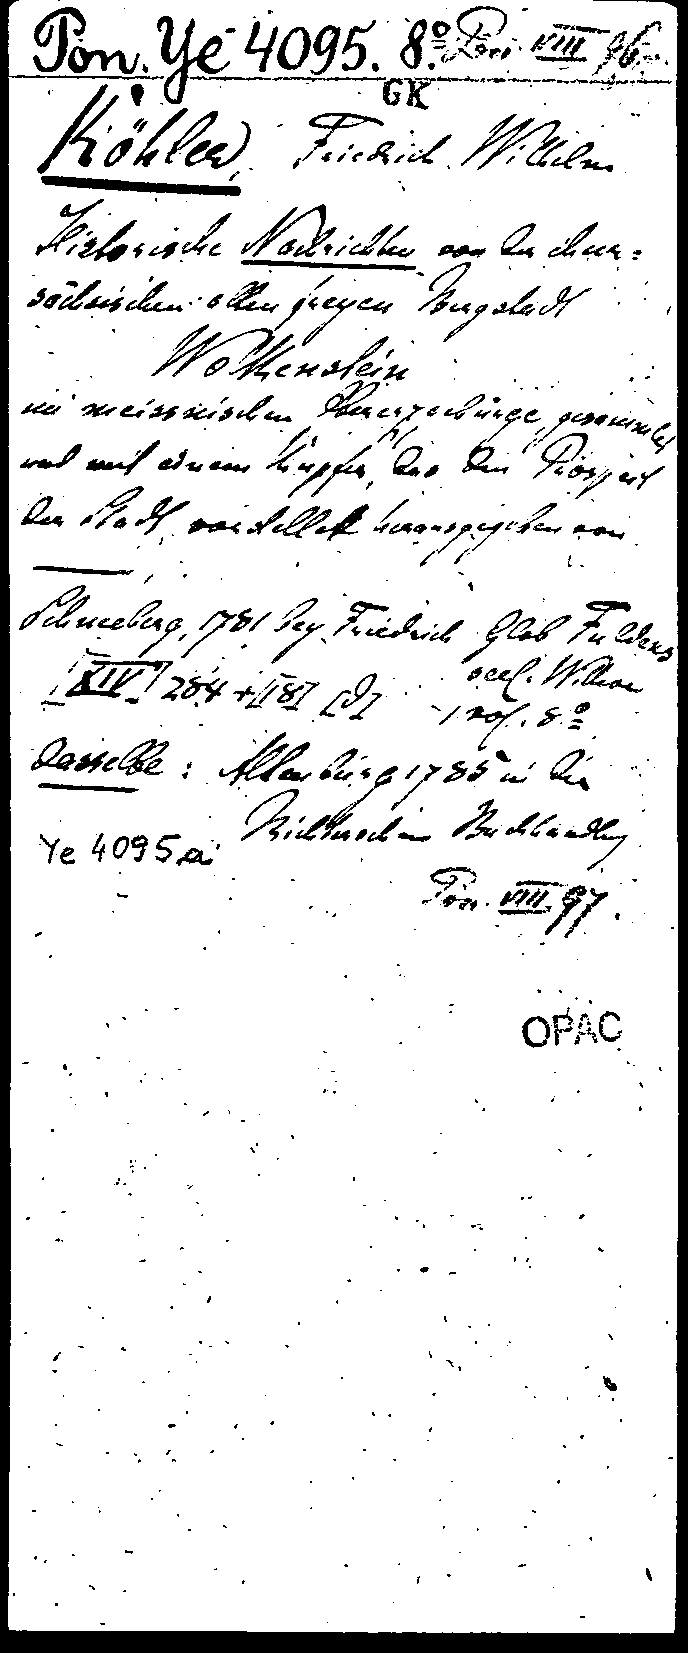 Pon. Ye 4095. 8.º Pon VIII 96.
GK
Köhler, Friedrich Wilhelm
Historische Nachrichten von der chur=
sächsischen alten freyen Bergstadt
Wolkenstein
im meissnischen Obererzgebürge, gesammlet
und mit einem Kupfer, das den Prospect
der Stadt vorstellet herausgegeben von
———,
Schneeberg, 1781 bey Friedrich Glob Fuldens
[XIV] 284 + [18]
1 vol. 8º
Dasselbe: Altenburg 1785 in der
Richterschen Buchhandlg
Ye 4095
Pon. VIII 97.
OPAC